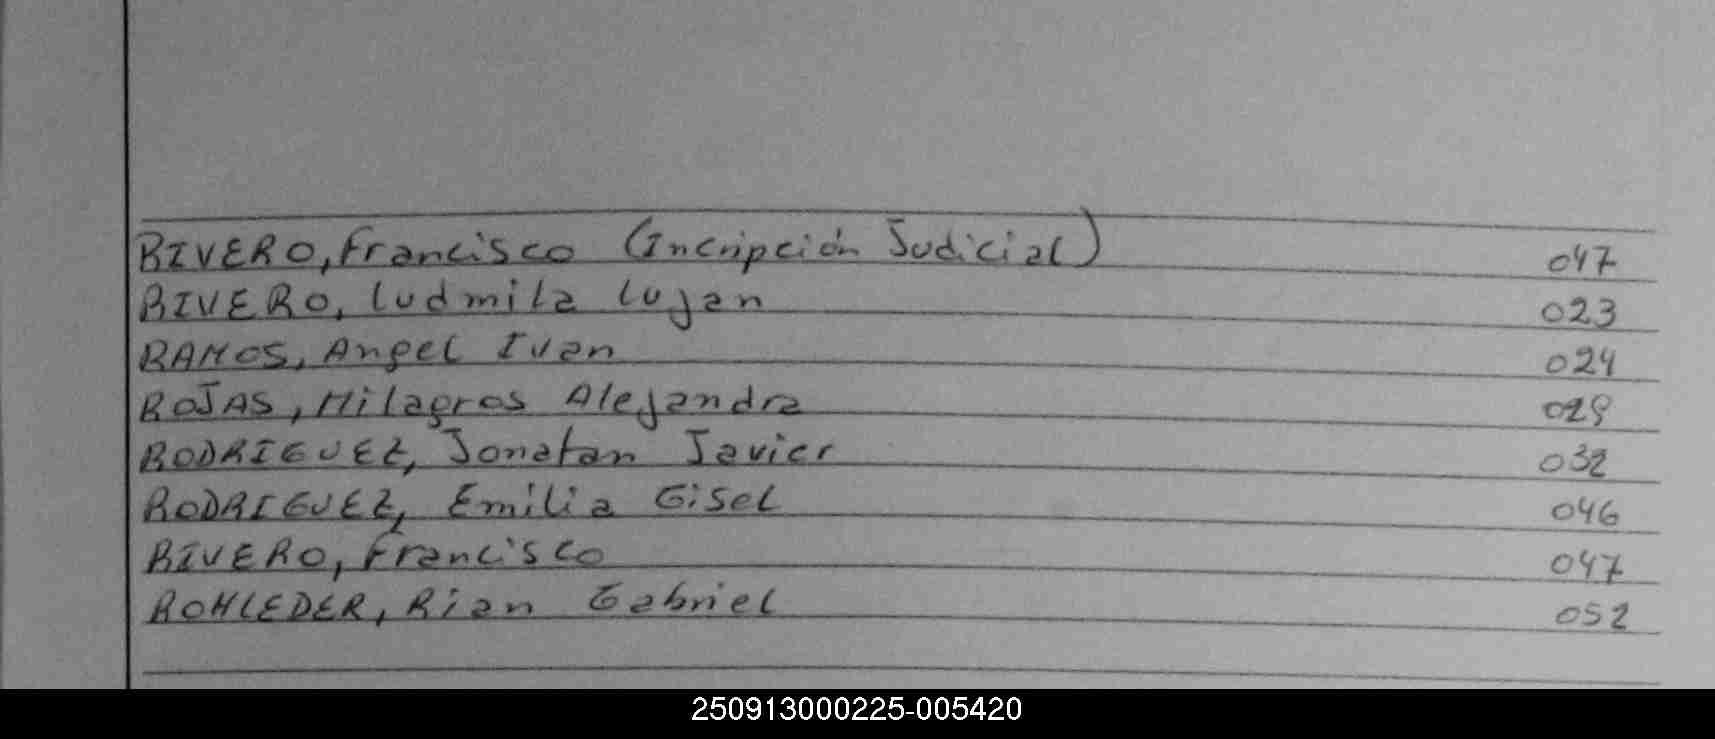 RIVERO, Francisco (Incripción Judicial) 047
RIVERO, Ludmila Lujan 023
RAMOS, Angel Ivan 024
ROJAS, Milagros Alejandra 029
RODRIGUEZ, Jonatan Javier 032
RODRIGUEZ, Emilia Gisel 046
RIVERO, Francisco 047
ROHLEDER, Rian Gabriel 052
250913000225-005420